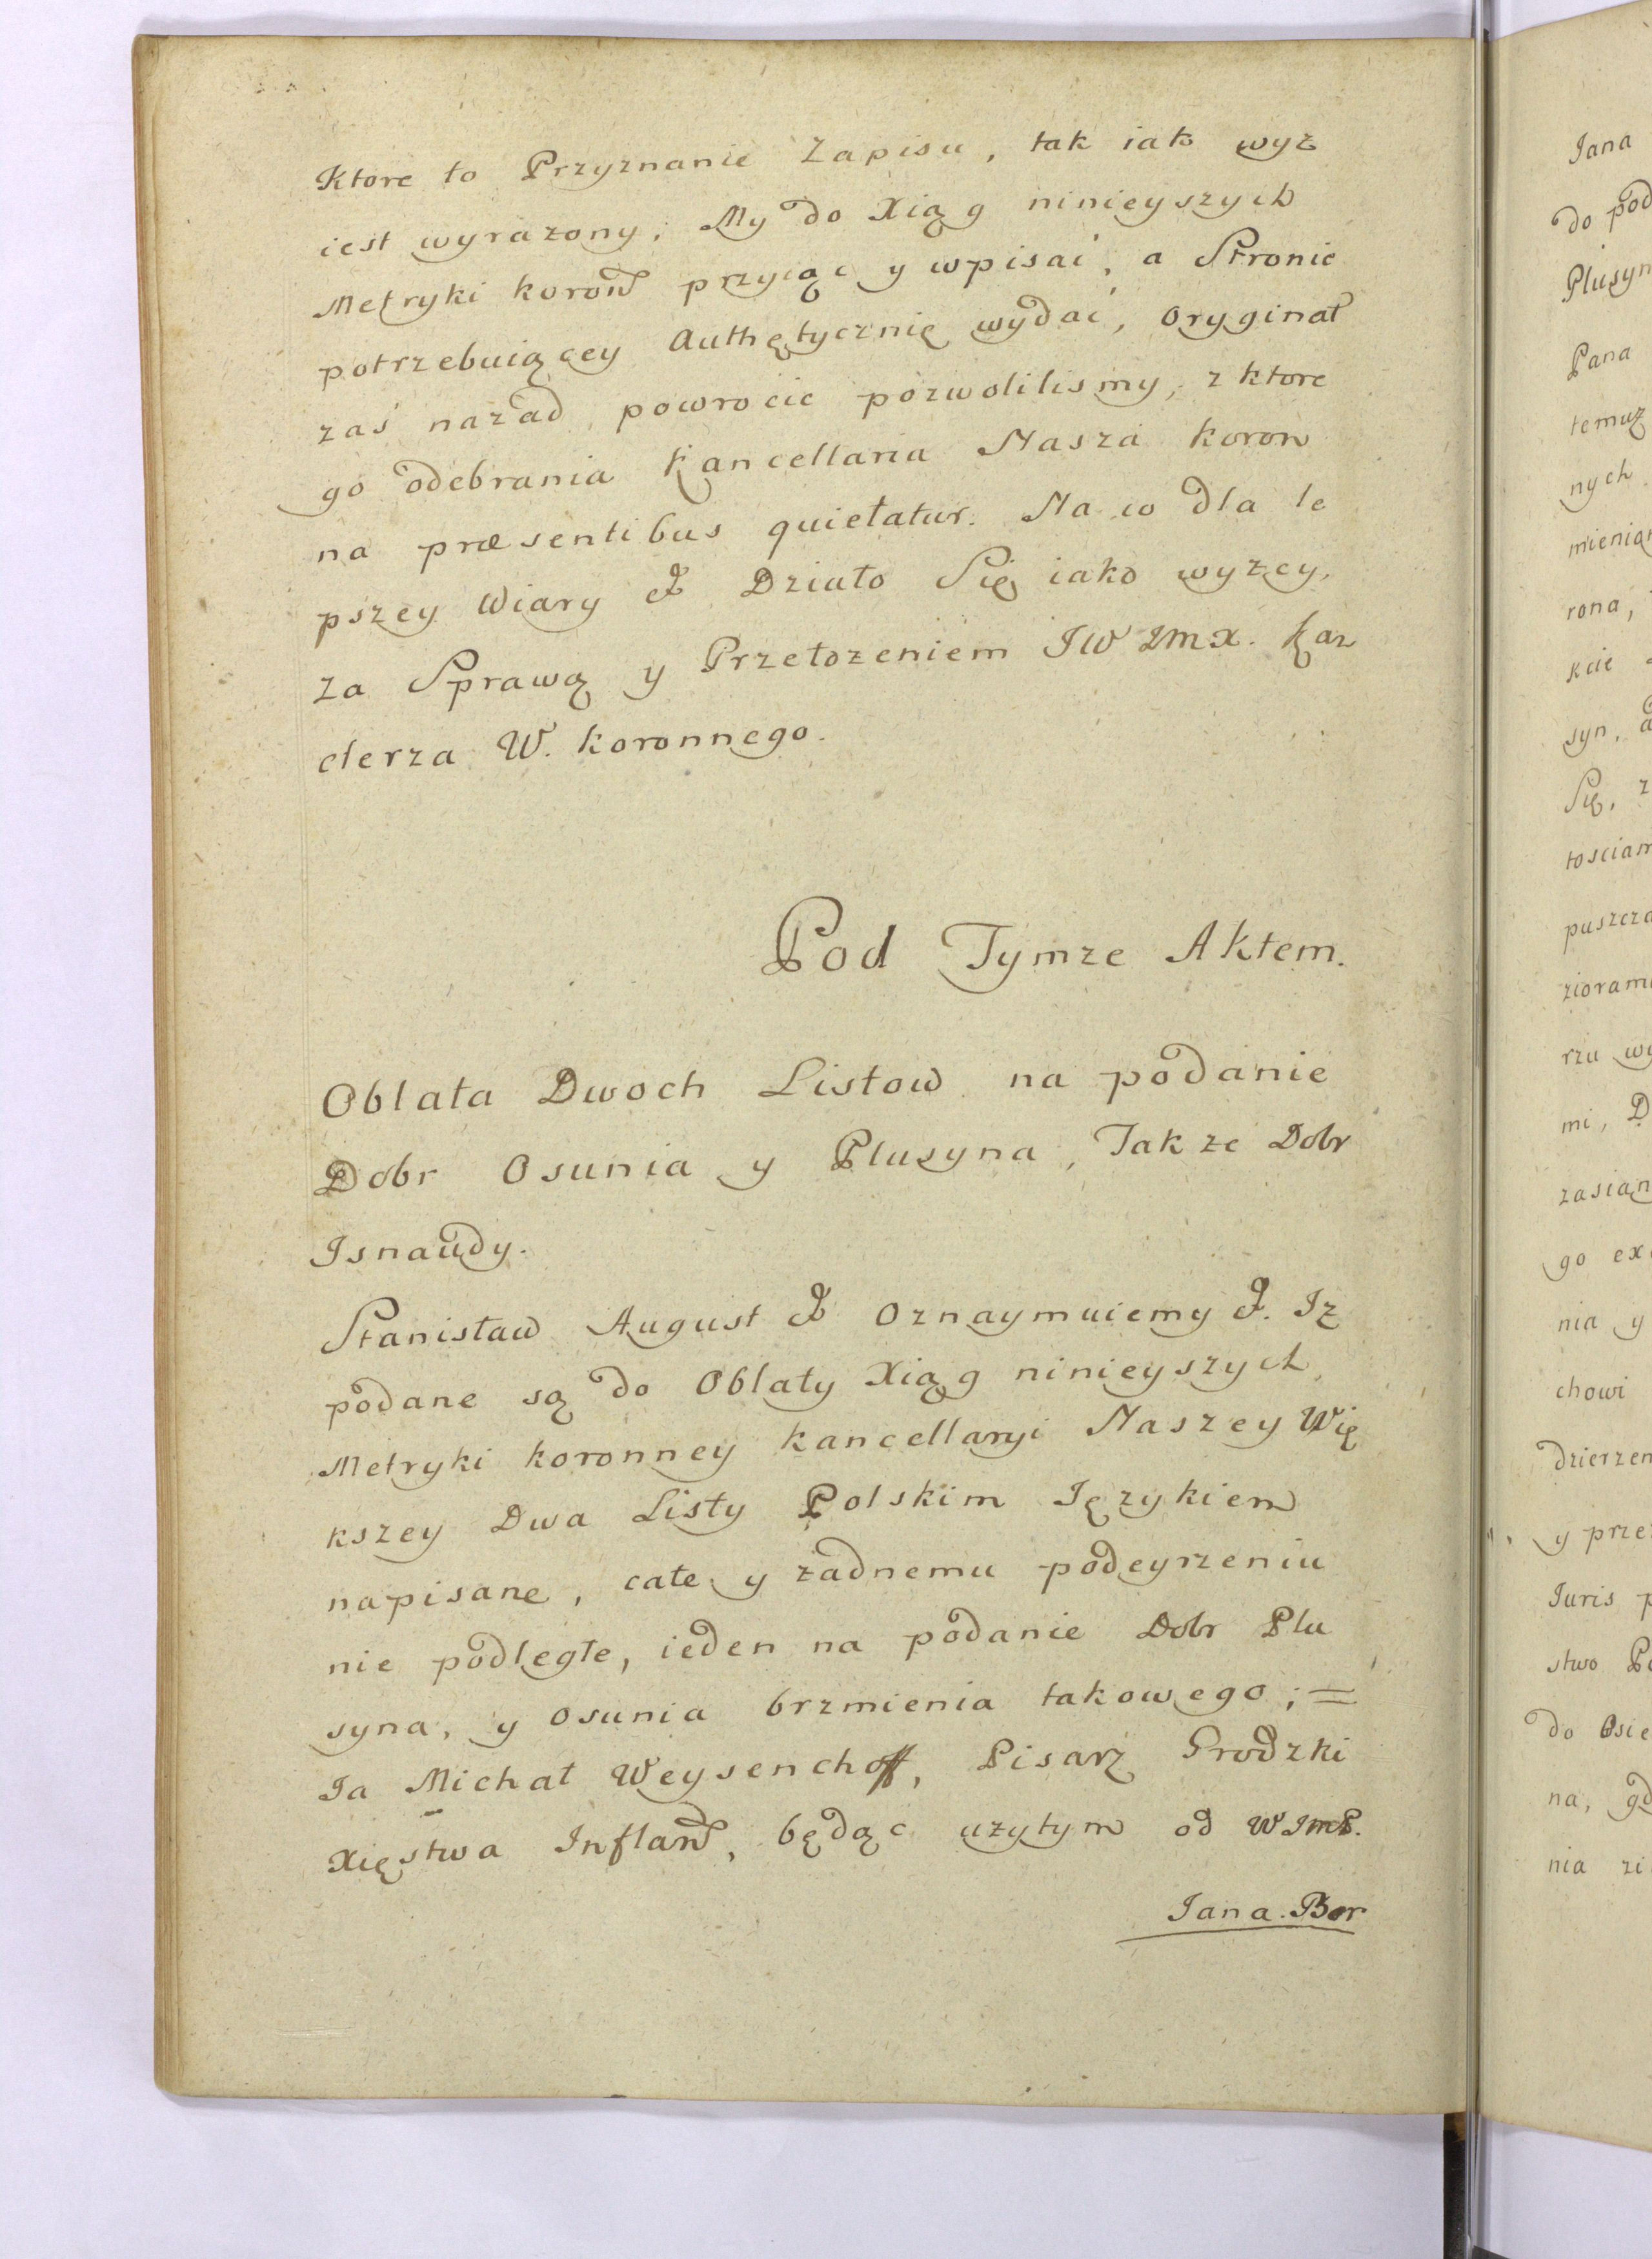 Ktore to Przyznanie Zapisu, tak iako wyż
iest wyrażony, My do Xiąg ninieyszych
Metryki koron przyiąc y wpisać, a Stronie
potrzebuiącey Authętycznię wydać, Oryginał
zaś nazad powrocic pozwolilismy, z ktore
go odebrania Kancellaria Nasza koron
na præsentibus quietatur. Na co dla le
pszey Wiary & Działo Się iako wyżey,
za Sprawą y Przełożeniem JW Jmx. Kan
clerza W. koronnego.
Pod Tymze Aktem.
Oblata Dwoch Listow na podanie
Dobr Osunia y Plusyna, Takze Dobr
Isnaudy.
Stanisław August & Oznaymuiemy &. Iż
podane są do Oblaty Xiąg ninieyszych
Metryki koronney kancellaryi Naszey Wię
kszey Dwa Listy Polskim Językiem
napisane, całe y żadnemu podeyrzeniu
nie podległe, ieden na podanie Dobr Plu
syna, y Osunia brzmienia takowego; =
Ja Michał Weysenchoff, Pisarz Grodzki
Xięstwa Inflan, będąc użytym od WJmP.
Jana Bor
Jana
do pod
Plusyn
Pana
temuż
nych
mienia
rona,
kcie
syn, a
Się, z
tosciam
puszcza
ziorami
rzu wy
mi, D
zasian
go ex
nia y
chowi
dzierżen
y prze
Juris p
stwo Po
do Osie
na, gd
nia zi